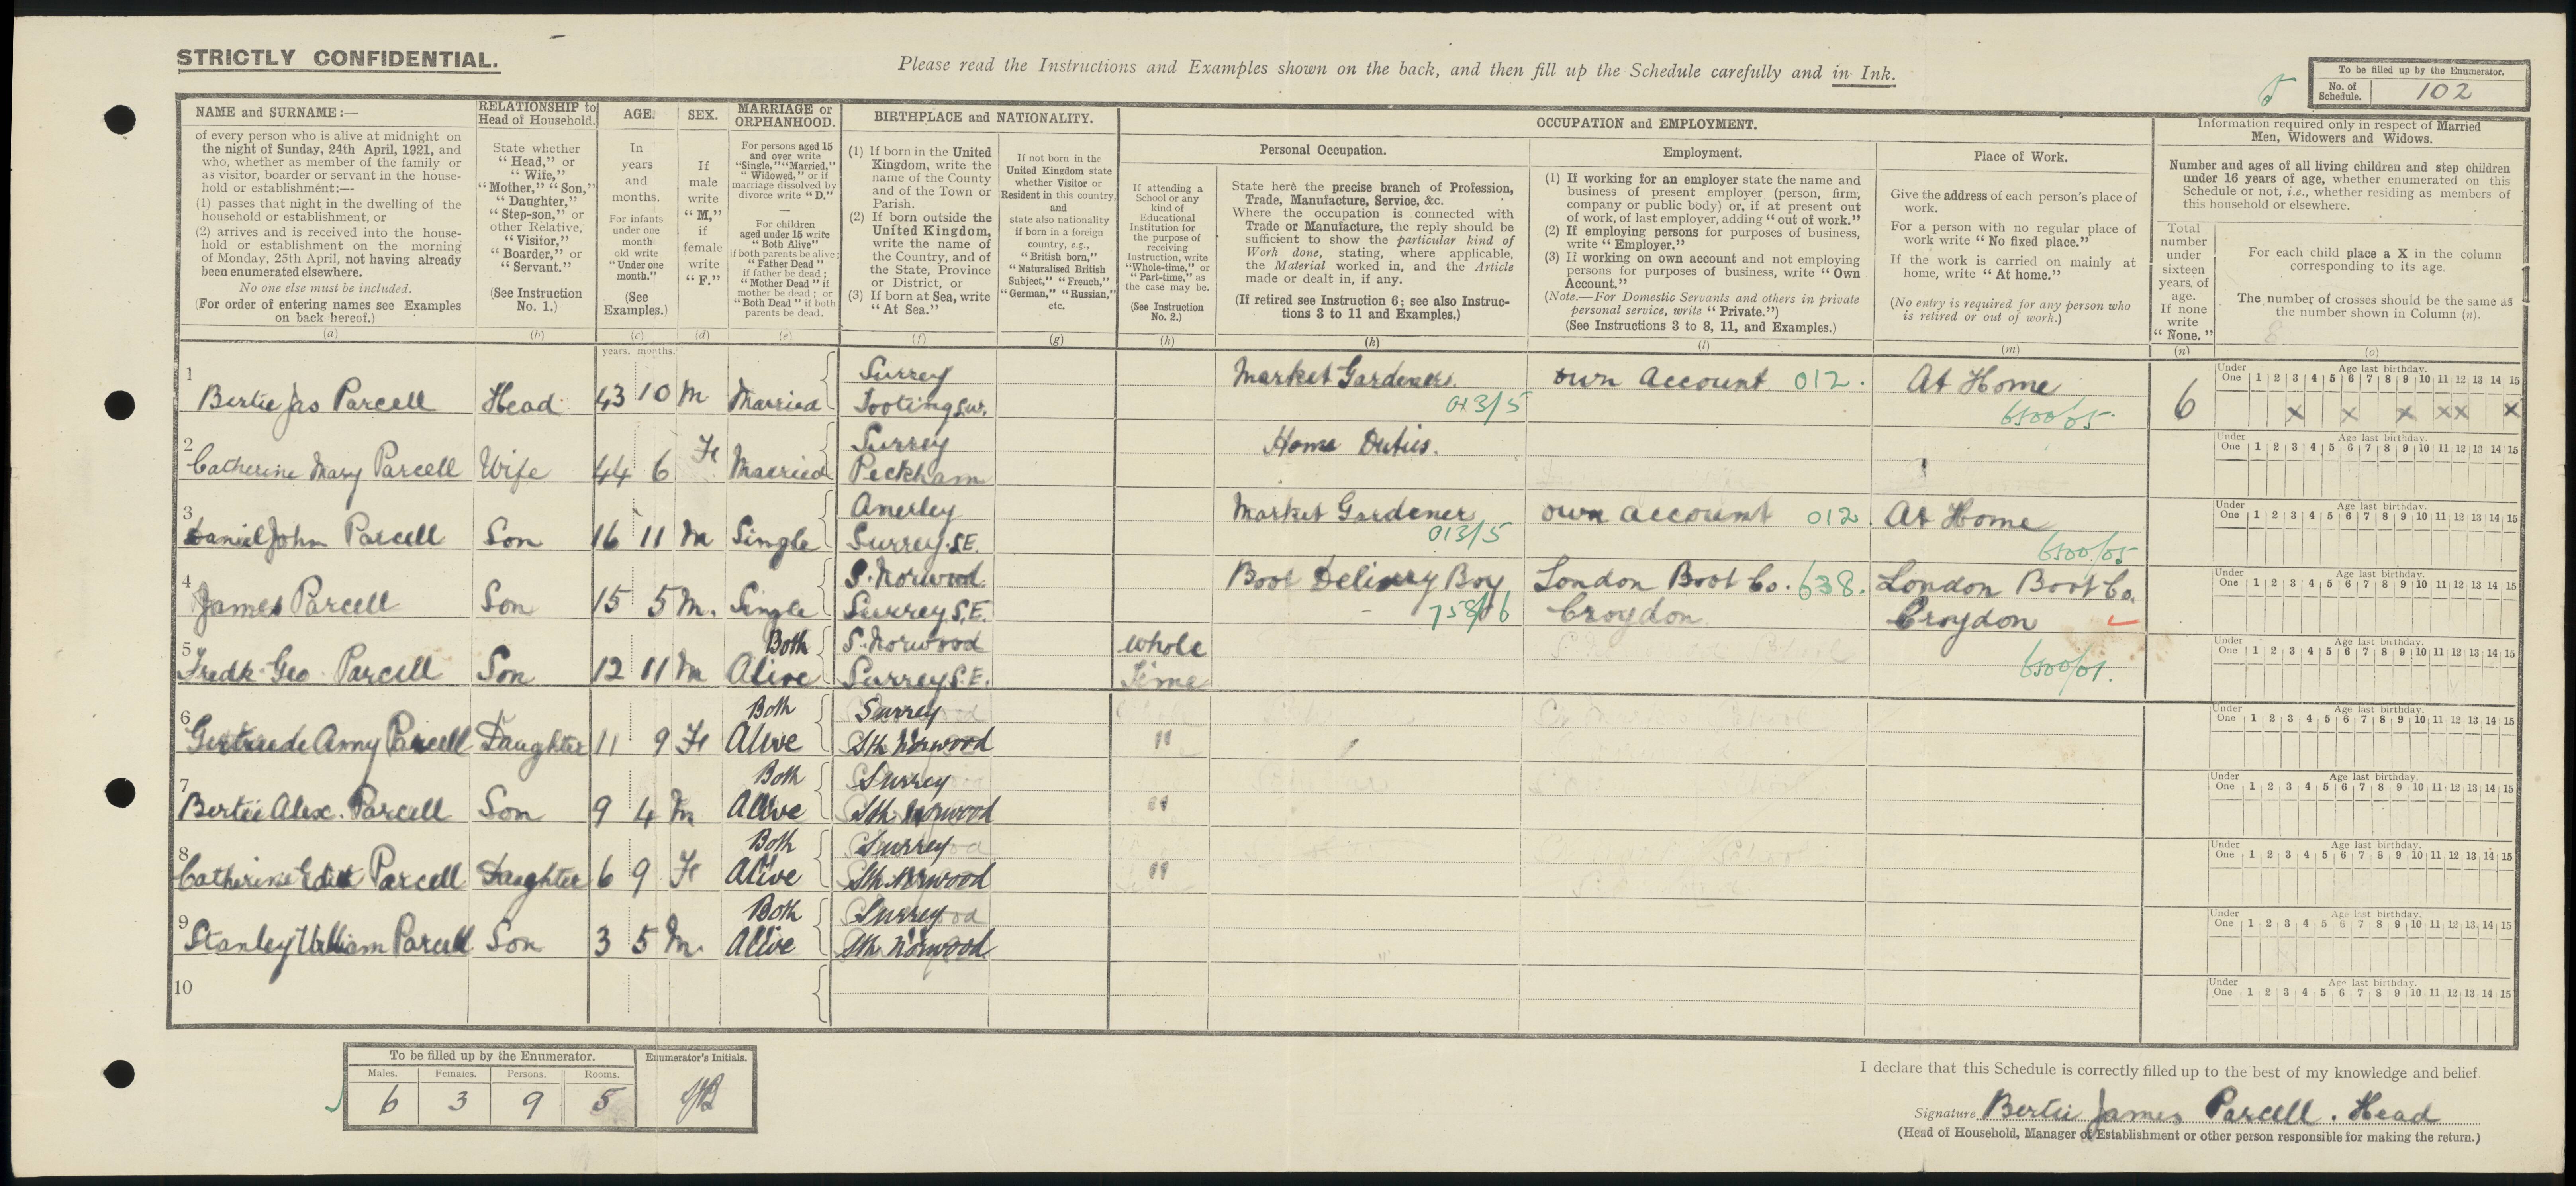 STRICTLY CONFIDENTIAL.
Please read the Instructions and Examples shown on the back, and then fill up the Schedule carefully and in Ink.
To be filled up by the Enumerator.
No. of Schedule. 102
NAME and SURNAME:—
of every person who is alive at midnight on
the night of Sunday, 24th April, 1921, and
who, whether as member of the family or
as visitor, boarder or servant in the house-
hold or establishment:—
(1) passes that night in the dwelling of the
household or establishment, or
(2) arrives and is received into the house-
hold or establishment on the morning
of Monday, 25th April, not having already
been enumerated elsewhere.
No one else must be included.
(For order of entering names see Examples
on back hereof.)
(a)
RELATIONSHIP to
Head of Household.
State whether
"Head," or
"Wife,"
"Mother," "Son,"
"Daughter,"
"Step-son," or
other Relative,
"Visitor,"
"Boarder," or
"Servant."
(See Instruction
No. 1.)
(b)
AGE.
In
years
and
months.
For infants
under one
month
old write
"Under one
month."
(See
Examples.)
(c)
SEX.
If
male
write
"M,"
if
female
write
"F."
(d)
MARRIAGE or
ORPHANHOOD.
For persons aged 15
and over write
"Single," "Married,"
"Widowed," or if
marriage dissolved by
divorce write "D."
—
For children
aged under 15 write
"Both Alive"
if both parents be alive;
"Father Dead"
if father be dead;
"Mother Dead" if
mother be dead; or
"Both Dead" if both
parents be dead.
(e)
BIRTHPLACE and NATIONALITY.
(1) If born in the United
Kingdom, write the
name of the County
and of the Town or
Parish.
(2) If born outside the
United Kingdom,
write the name of
the Country, and of
the State, Province
or District, or
(3) If born at Sea, write
"At Sea."
(f)
If not born in the
United Kingdom state
whether Visitor or
Resident in this country,
and
state also nationality
if born in a foreign
country, e.g.,
"British born,"
"Naturalised British
Subject," "French,"
"German," "Russian,"
etc.
(g)
OCCUPATION and EMPLOYMENT.
If attending a
School or any
kind of
Educational
Institution for
the purpose of
receiving
Instruction, write
"Whole-time," or
"Part-time," as
the case may be.
(See Instruction
No. 2.)
(h)
Personal Occupation.
State here the precise branch of Profession,
Trade, Manufacture, Service, &c.
Where the occupation is connected with
Trade or Manufacture, the reply should be
sufficient to show the particular kind of
Work done, stating, where applicable,
the Material worked in, and the Article
made or dealt in, if any.
(If retired see Instruction 6; see also Instruc-
tions 3 to 11 and Examples.)
(k)
Employment.
(1) If working for an employer state the name and
business of present employer (person, firm,
company or public body) or, if at present out
of work, of last employer, adding "out of work."
(2) If employing persons for purposes of business,
write "Employer."
(3) If working on own account and not employing
persons for purposes of business, write "Own
Account."
(Note.—For Domestic Servants and others in private
personal service, write "Private.")
(See Instructions 3 to 8, 11, and Examples.)
(l)
Place of Work.
Give the address of each person's place of
work.
For a person with no regular place of
work write "No fixed place."
If the work is carried on mainly at
home, write "At home."
(No entry is required for any person who
is retired or out of work.)
(m)
Information required only in respect of Married
Men, Widowers and Widows.
Number and ages of all living children and step children
under 16 years of age, whether enumerated on this
Schedule or not, i.e., whether residing as members of
this household or elsewhere.
Total
number
under
sixteen
years of
age.
If none
write
"None."
(n)
For each child place a X in the column
corresponding to its age.
The number of crosses should be the same as
the number shown in Column (n).
(o)
years. months.
Under One Age last birthday.
1 2 3 4 5 6 7 8 9 10 11 12 13 14 15
1 Bertie Jas Parcell Head 43 10 M Married Surrey Tooting S.W. Market Gardener 013/5 own account 012. At Home 6500/05. 6 X X X X X X
Under One Age last birthday.
1 2 3 4 5 6 7 8 9 10 11 12 13 14 15
2 Catherine Mary Parcell Wife 44 6 Fe Married Surrey Peckham Home Duties.
Under One Age last birthday.
1 2 3 4 5 6 7 8 9 10 11 12 13 14 15
3 Daniel John Parcell Son 16 11 M Single Anerley Surrey S.E. Market Gardener 013/5 own account 012 At Home 6500/05
Under One Age last birthday.
1 2 3 4 5 6 7 8 9 10 11 12 13 14 15
4 James Parcell Son 15 5 M. Single S. Norwood Surrey S.E. Boot Delivery Boy London Boot Co. 638. Croydon London Boot Co. Croydon
Under One Age last birthday.
1 2 3 4 5 6 7 8 9 10 11 12 13 14 15
5 Fredk Geo Parcell Son 12 11 M Both Alive S. Norwood Surrey S.E. whole Time 6500/01.
Under One Age last birthday.
1 2 3 4 5 6 7 8 9 10 11 12 13 14 15
6 Gertrude Amy Parcell Daughter 11 9 Fe Both Alive Surrey Sth Norwood "
Under One Age last birthday.
1 2 3 4 5 6 7 8 9 10 11 12 13 14 15
7 Bertie Alex. Parcell Son 9 4 M Both Alive Surrey Sth Norwood "
Under One Age last birthday.
1 2 3 4 5 6 7 8 9 10 11 12 13 14 15
8 Catherine Edith Parcell Daughter 6 9 Fe Both Alive Surrey Sth Norwood "
Under One Age last birthday.
1 2 3 4 5 6 7 8 9 10 11 12 13 14 15
9 Stanley William Parcell Son 3 5 M. Both Alive Surrey Sth Norwood
Under One Age last birthday.
1 2 3 4 5 6 7 8 9 10 11 12 13 14 15
10
To be filled up by the Enumerator.
Males. Females. Persons. Rooms.
6 3 9 5
Enumerator's Initials.
I declare that this Schedule is correctly filled up to the best of my knowledge and belief.
Signature Bertie James Parcell. Head
(Head of Household, Manager of Establishment or other person responsible for making the return.)